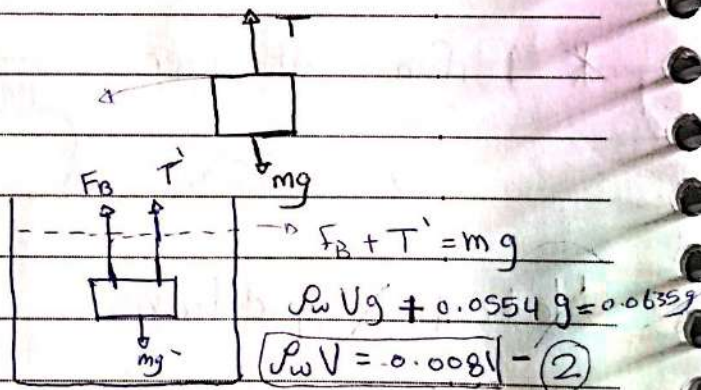 T
mg
F_B T'
F_B + T' = mg
ρ_w Vg + 0.0554 g = 0.0635g
mg
ρ_w V = 0.0081 - ②